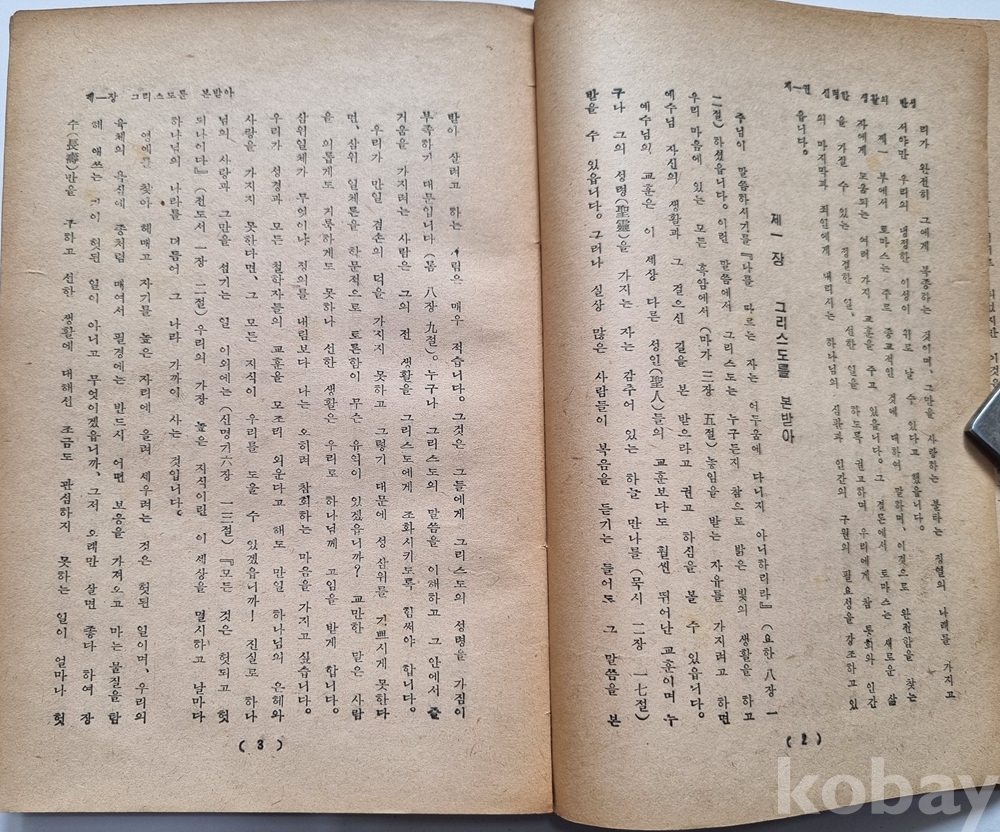 제一편 신령한 생활의 반성
리가 완전히 그에게 복종하는 것이며, 그만을 사랑하는 불타는 정열의 나래를 가지고
서야만 우리의 냉정한 이성이 위로 날 수 있다고 했읍니다.
제一부에서 토마스는 주로 종교적인 것에 대하여 말하며, 이것으로 완전함을 찾는
자에게 도움되는 여러 가지 교훈을 주고 있읍니다. 그 결론에서 토마스는 새로운 삶
을 가질 수 있는 정결한 일, 선한 일을 하도록 권고하며 우리에게 참 뜻회와 인간
의 마지막과 죄인에게 내리시는 하나님의 심판과 인간의 구원의 필요성을 강조하고 있
읍니다.
제一장 그리스도를 본받아
주님이 말씀하시기를 『나를 따르는 자는 어두움에 다니지 아니하리라』(요한 八장 一
二절) 하셨읍니다. 이런 말씀에서 그리스도는 누구든지 참으로 밝은 빛의 생활을 하고
우리 마음에 있는 모든 흑암에서 (마가 三장 五절) 놓임을 받는 자유를 가지려고 하면
예수님 자신의 생활과 그 걸으신 길을 본 받으라고 권고 하심을 볼 수 있읍니다.
예수님의 교훈은 이 세상 다른 성인(聖人)들의 교훈보다도 훨씬 뛰어난 교훈이며 누
구나 그의 성령(聖靈)을 가지는 자는 감추어 있는 하늘 만나를 (묵시 二장 一七절)
받을 수 있읍니다. 그러나 실상 많은 사람들이 복음을 듣기는 들어도 그 말씀을 본
(2)
제一장 그리스도를 본받아
받아 살려고 하는 사람은 매우 적습니다. 그것은 그들에게 그리스도의 성령을 가짐이
부족하기 때문입니다 (롬 八장 九절). 누구나 그리스도의 말씀을 이해하고 그 안에서 즐
거움을 가지려는 사람은 그의 전 생활을 그리스도에게 조화시키도록 힘써야 합니다.
우리가 만일 겸손의 덕을 가지지 못하고 그렇기 때문에 성 삼위를 기쁘시게 못한다
면, 삼위 일체론을 학문적으로 토론함이 무슨 유익이 있겠읍니까? 교만한 말은 사람
을 의롭게도 거룩하게도 못하나 선한 생활은 우리로 하나님께 고임을 받게 합니다.
삼위일체가 무엇이냐 정의를 내림보다 나는 오히려 참회하는 마음을 가지고 싶습니다.
우리가 성경과 모든 철학자들의 교훈을 모조리 외운다고 해도 만일 하나님의 은혜와
사랑을 가지지 못한다면, 그 모든 지식이 우리를 도울 수 있겠읍니까! 진실로 하나
님의 사랑과 그만을 섬기는 일 이외에는 (신명기 六장 一三절) 『모든 것은 헛되고 헛
되나이다』(전도서 一장 二절) 우리의 가장 높은 지식이란 이 세상을 멸시하고 날마다
하나님의 나라를 더듬어 그 나라 가까이 사는 것입니다.
영예를 찾아 헤매고 자기를 높은 자리에 올려 세우려는 것은 헛된 일이며, 우리의
육체의 욕심에 종처럼 매여서 필경에는 반드시 어떤 보응을 가져오고 마는 물질을 탐
해 애쓰는 것이 헛된 일이 아니고 무엇이겠읍니까, 그저 오래만 살면 좋다 하여 장
수(長壽)만을 구하고 선한 생활에 대해선 조금도 관심하지 못하는 일이 얼마나 헛
(3)
kobay